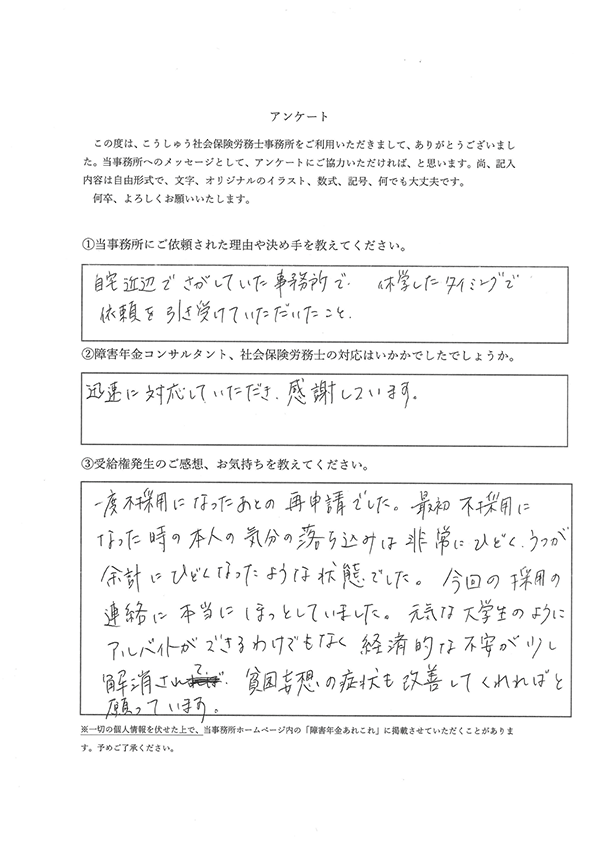 アンケート
この度は、こうしゅう社会保険労務士事務所をご利用いただきまして、ありがとうございまし
た。当事務所へのメッセージとして、アンケートにご協力いただければ、と思います。尚、記入
内容は自由形式で、文字、オリジナルのイラスト、数式、記号、何でも大丈夫です。
何卒、よろしくお願いいたします。
①当事務所にご依頼された理由や決め手を教えてください。
自宅近辺でさがしていた事務所で、休学したタイミングで
依頼を引き受けていただいたこと.
②障害年金コンサルタント、社会保険労務士の対応はいかかでしたでしょうか。
迅速に対応していただき、感謝しています。
③受給権発生のご感想、お気持ちを教えてください。
一度不採用になったあとの再申請でした。最初不採用に
なった時の本人の気分の落ち込みは非常にひどく、うつが
余計にひどくなったような状態でした。今回の採用の
連絡に本当にほっとしていました。元気な大学生のように
アルバイトができるわけでもなく経済的な不安が少し
解消されて、貧困妄想の症状も改善してくれればと
願っています。
※一切の個人情報を伏せた上で、当事務所ホームページ内の「障害年金あれこれ」に掲載させていただくことがありま
す。予めご了承ください。